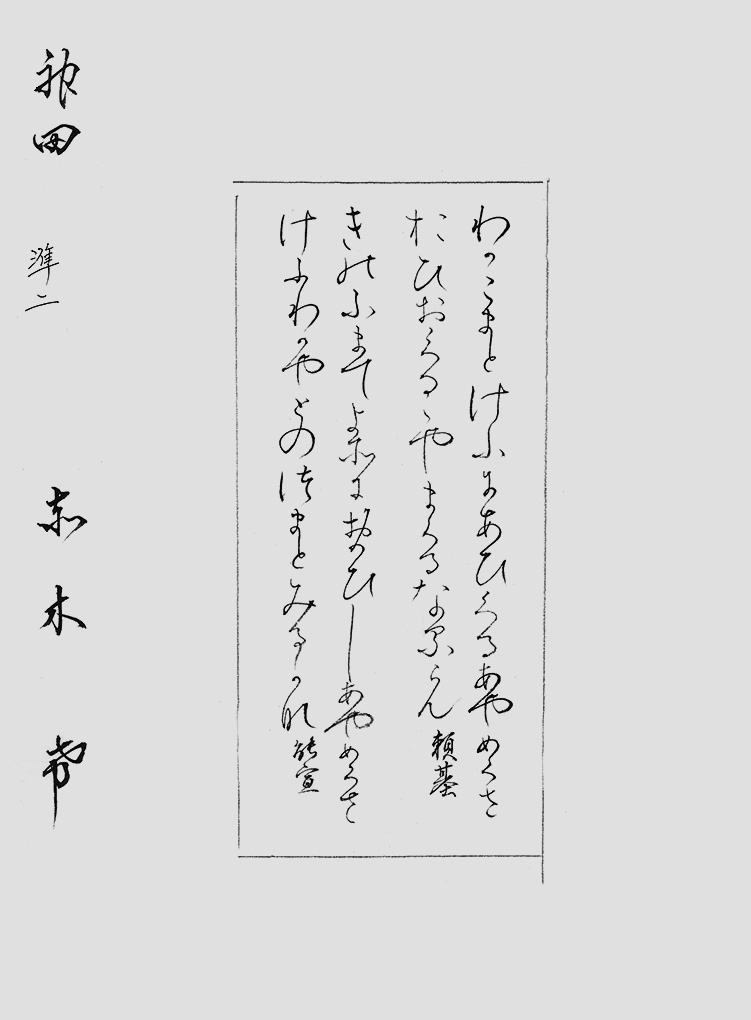 わかこまとけふにあひくるあやめくさ
おひおくるゝやまくるなるらん 頼基
きのふまてよそにおもひしあやめくさ
けふわかやとのつまとみるかな 能宣
神田 準二 赤木